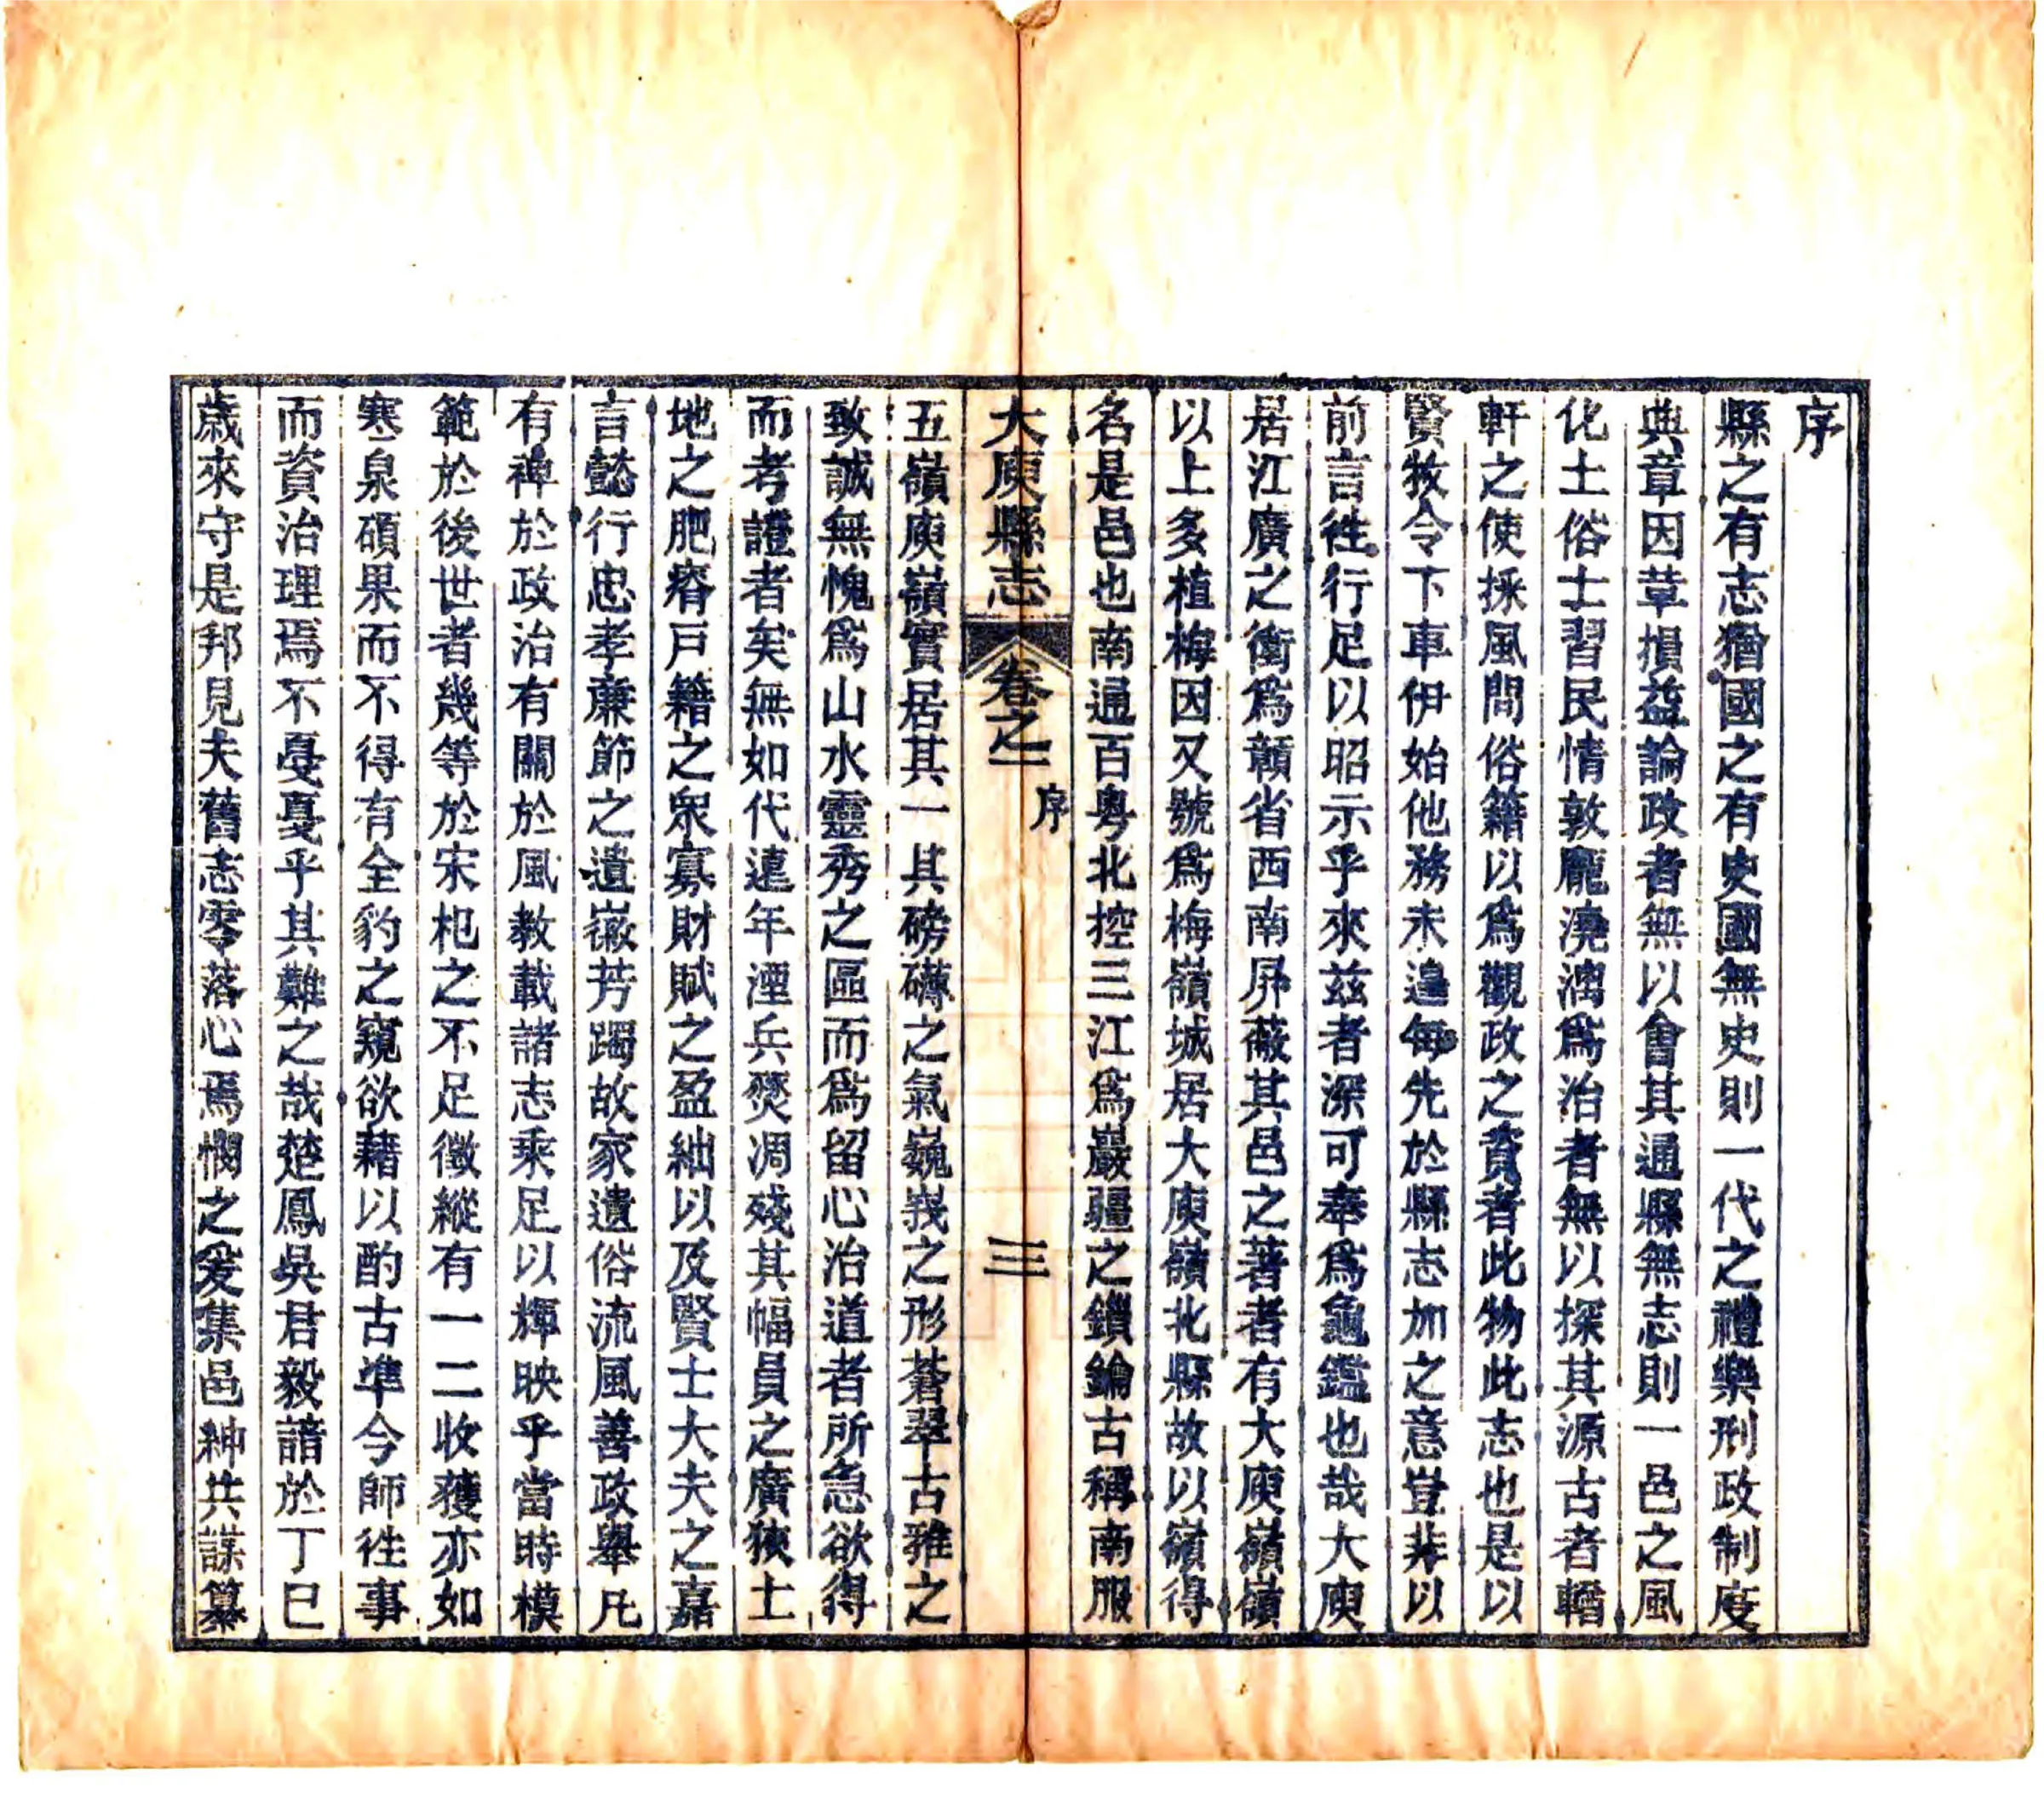 序
縣之有志猶國之有史國無史則一代之禮樂刑政制度
典章因革損益論政者無以會其通縣無志則一邑之風
化土俗士習民情敦龐澆漓爲治者無以探其源古者輶
軒之使採風問俗籍以爲觀政之資者此物此志也是以
賢牧令下車伊始他務未遑每先於縣志加之意豈非以
前言徃行足以昭示乎來茲者深可奉爲龜鑑也哉大庾
居江廣之衝爲贛省西南屏蔽其邑之著者有大庾嶺嶺
以上多植梅因又號爲梅嶺城居大庾嶺北縣故以嶺得
名是邑也南通百粤北控三江爲巖疆之鎖鑰古稱南服
大庾縣志
卷之一
序
三
五嶺庾嶺實居其一其磅礴之氣巍峩之形蒼翠古雅之
致誠無愧爲山水靈秀之區而爲留心治道者所急欲得
而考證者矣無如代遠年湮兵燹凋殘其幅員之廣狹土
地之肥瘠戸籍之衆寡財賦之盈絀以及賢士大夫之嘉
言懿行忠孝亷節之遺徽芳躅故家遺俗流風善政舉凡
有裨於政治有關於風教載諸志乘足以輝映乎當時模
範於後世者幾等於宋杞之不足徵縱有一二收獲亦如
寒泉碩果而不得有全豹之窺欲藉以酌古準今師徃事
而資治理焉不戞戞乎其難之哉楚鳳吳君毅諳於丁巳
歲來守是邦見夫舊志零落心焉憫之爰集邑紳共謀纂